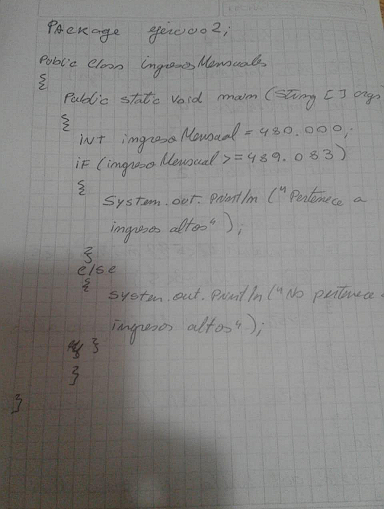 PACKage ejercicio2;
Public Class ingresosMensuales
{
Public static void main (String [] args
{
INT ingresoMensual = 480.000;
iF (ingresoMensual >= 489.083)
{
System.out.println ("Pertenece a
ingresos altos");
}
else
{
System.out.println ("No pertenece a
ingresos altos");
}
}
}